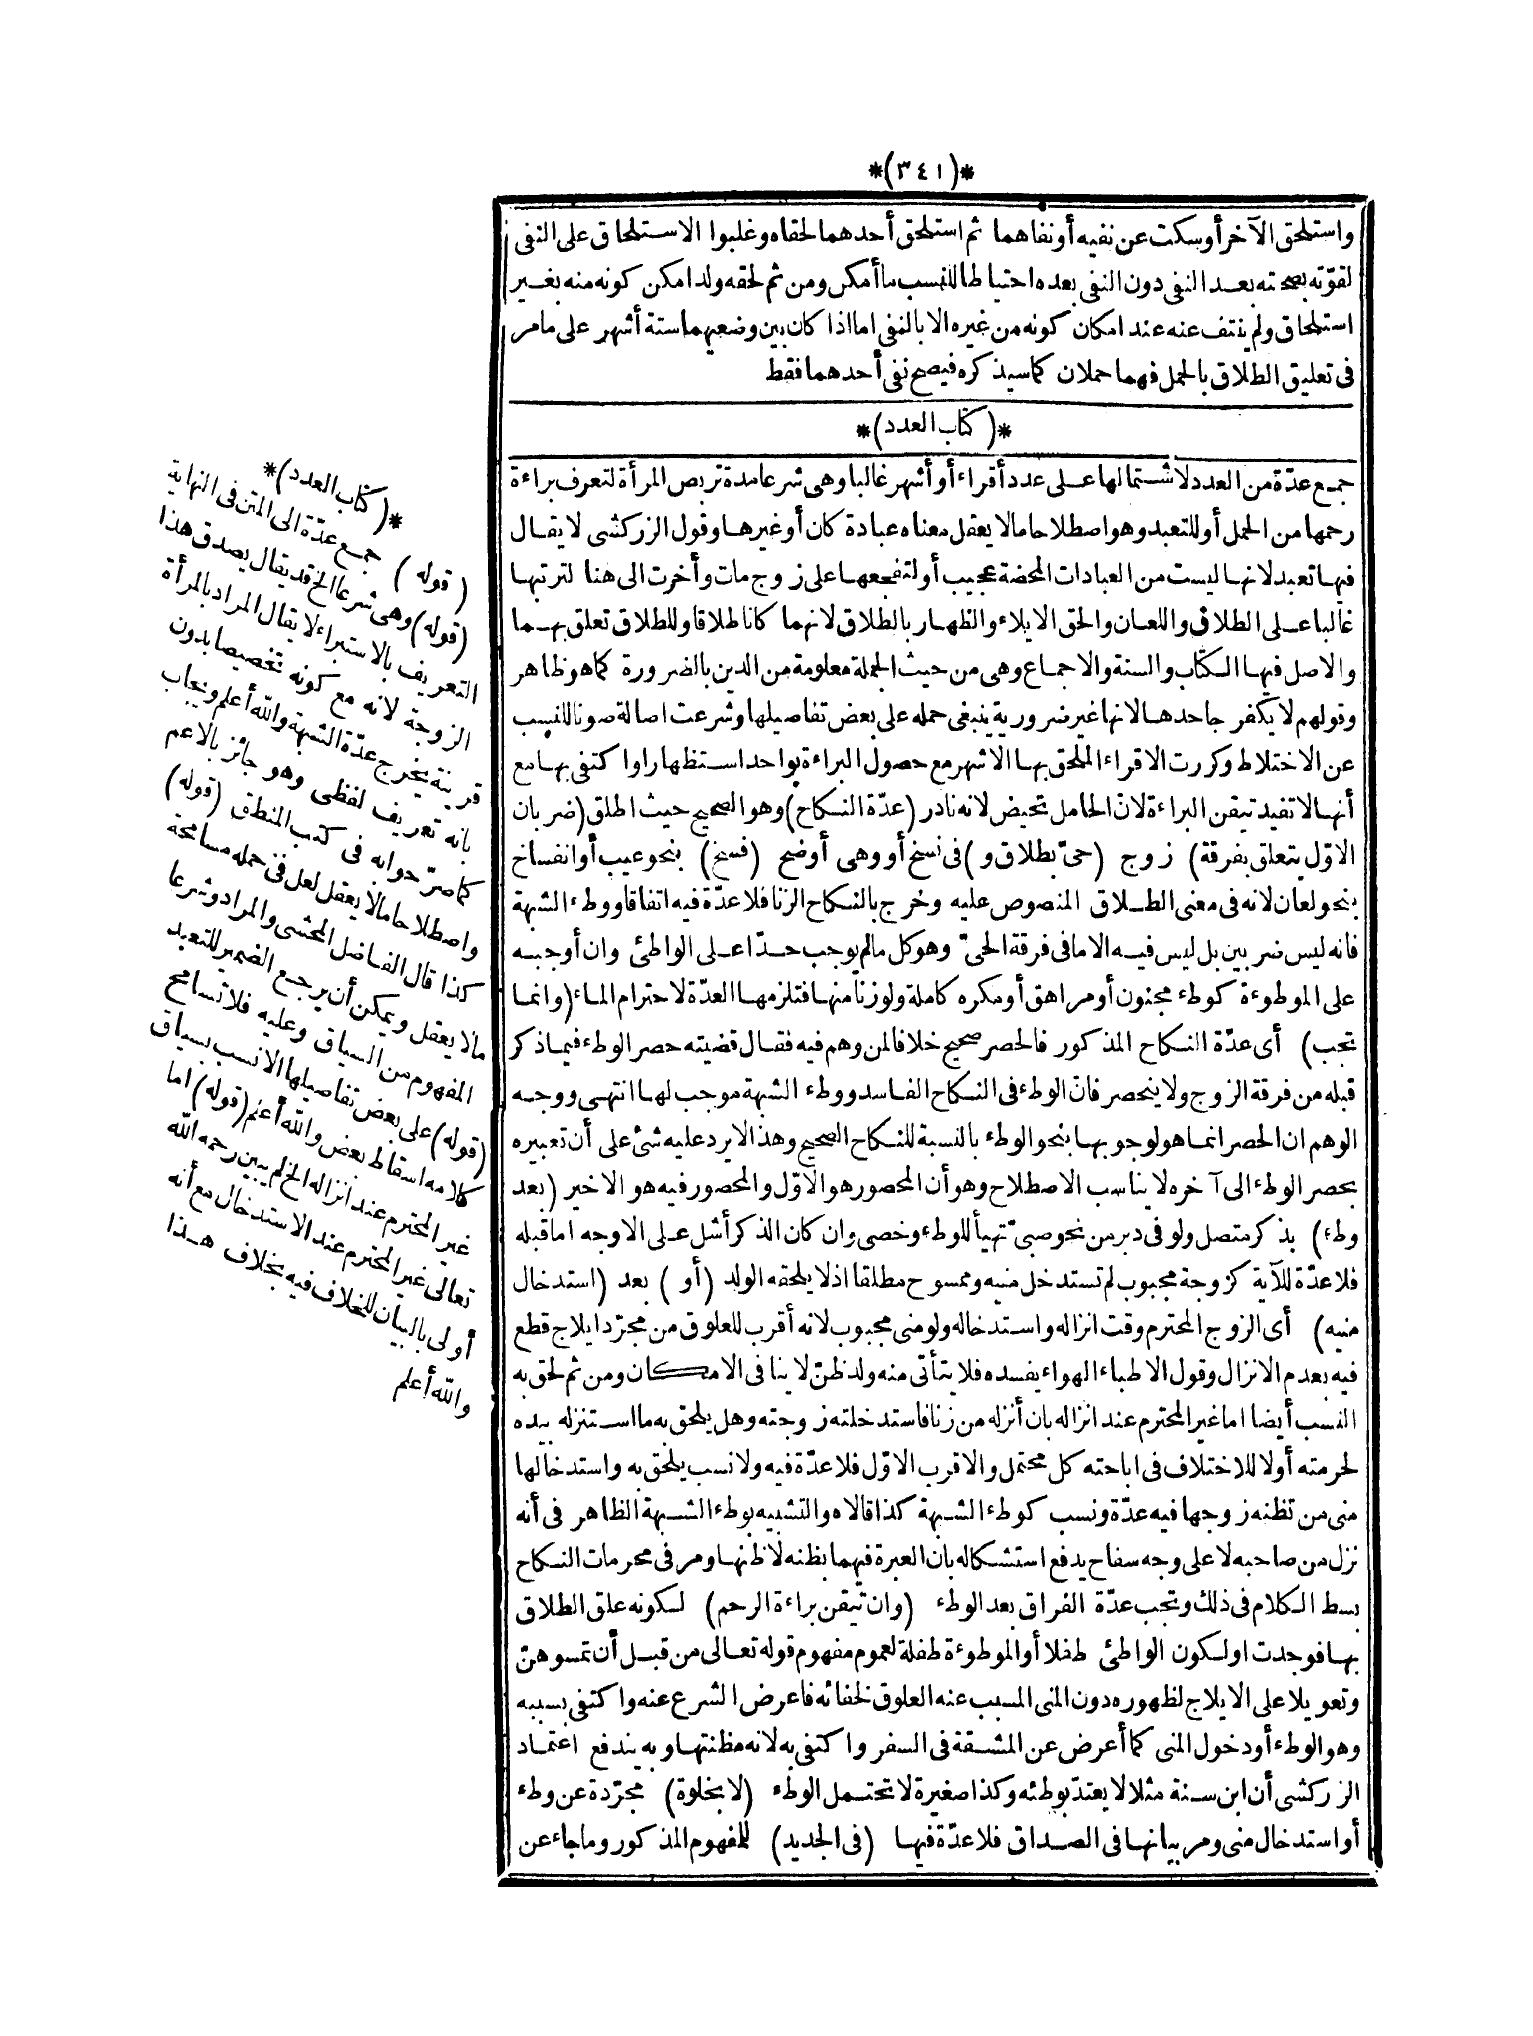 *(٣٤١)*
واستلحق الآخر أوسكت عن نفيه أونفاهما ثم استلحق أحدهما لحقاه وغلبوا الاستلحاق على النفى
لقوّته بصحته بعد النفى دون النفى بعده احتياطا للنسب ما أمكن ومن ثم لحقه ولد امكن كونه منه بغير
استلحاق ولم ينتف عنه عند امكان كونه من غيره الا بالنفى اما اذا كان بين وضعيهما ستة أشهر على مامر
فى تعليق الطلاق بالحمل فهما حملان كما سيذكره فيصح نفى أحدهما فقط
*(كتاب العدد)*
جمع عدّة من العدد لاشتمالها على عدد أقراء أو أشهر غالبا وهى شرعا مدة تربص المرأة لتعرف براءة
رحمها من الحمل أو للتعبد وهو اصطلاحا مالا يعقل معناه عبادة كان أوغيرها وقول الزركشى لا يقال
فيها تعبد لانها ليست من العبادات المحضة عجيب أو لتفجعها على زوج مات وأخرت الى هنا لترتبها
غالبا على الطلاق واللعان والحق الايلاء والظهار بالطلاق لانهما كانا طلاقا وللطلاق تعلق بهما
والاصل فيها الكتاب والسنة والاجماع وهى من حيث الجملة معلومة من الدين بالضرورة كما هو ظاهر
وقولهم لا يكفر جاحدها لانها غير ضرورية ينبغى حمله على بعض تفاصيلها وشرعت اصالة صونا للنسب
عن الاختلاط وكررت الاقراء الملحق بها الاشهر مع حصول البراءة بواحد استظهارا واكتفى بها مع
أنها لا تفيد تيقن البراءة لانّ الحامل تحيض لانه نادر (عدّة النكاح) وهو الصحيح حيث اطلق (ضربان
الاوّل يتعلق بفرقة) زوج (حىّ بطلاق و) فى نسخ أو وهى أوضح (فسخ) بنحو عيب أو انفساخ
بنحو لعان لانه فى معنى الطلاق المنصوص عليه وخرج بالنكاح الزنا فلا عدّة فيه اتفاقا ووطء الشبهة
فانه ليس ضربين بل ليس فيه الا ما فى فرقة الحىّ وهو كل مالم يوجب حدّا على الواطئ وان أوجبه
على الموطوءة كوطء مجنون أومراهق أومكره كاملة ولو زنا منها فتلزمها العدّة لاحترام الماء (وانما
تجب) أى عدّة النكاح المذكور فالحصر صحيح خلافا لمن وهم فيه فقال قضيته حصر الوطء فيما ذكر
قبله من فرقة الزوج ولا ينحصر فانّ الوطء فى النكاح الفاسد ووطء الشبهة موجب لها انتهى ووجه
الوهم ان الحصر انما هو لوجوبها بنحو الوطء بالنسبة للنكاح الصحيح وهذا لا يرد عليه شئ على أن تعبيره
بحصر الوطء الى آخره لا يناسب الاصطلاح وهو أن المحصور هو الاوّل والمحصور فيه هو الاخير (بعد
وطء) بذكر متصل ولو فى دبر من نحو صبىّ تهيأ للوطء وخصى وان كان الذكر أشل على الاوجه اما قبله
فلا عدّة للآية كزوجة مجبوب لم تستدخل منيه وممسوح مطلقا اذ لا يلحقه الولد (أو) بعد (استدخال
منيه) أى الزوج المحترم وقت انزاله واستدخاله ولو منى مجبوب لانه أقرب للعلوق من مجرّد ايلاج قطع
فيه بعدم الانزال وقول الاطباء الهواء يفسده فلا يتأتى منه ولد ظنّ لا ينافى الامكان ومن ثم لحق به
النسب أيضا اما غير المحترم عند انزاله بان أنزله من زنا فاستدخلته زوجته وهل يلحق به ما استنزله بيده
لحرمته أولا للاختلاف فى اباحته كل محتمل والاقرب الاوّل فلا عدّة فيه ولا نسب يلحق به واستدخالها
منى من تظنه زوجها فيه عدّة ونسب كوطء الشبهة كذا قالاه والتشبيه بوطء الشبهة الظاهر فى أنه
نزل من صاحبه لا على وجه سفاح يدفع استشكاله بان العبرة فيهما بظنه لا ظنها ومر فى محرمات النكاح
بسط الكلام فى ذلك وتجب عدّة الفراق بعد الوطء (وان تيقن براءة الرحم) لكونه علق الطلاق
بها فوجدت او لكون الواطئ طفلا أو الموطوءة طفلة لعموم مفهوم قوله تعالى من قبل أن تمسوهنّ
وتعويلا على الايلاج لظهوره دون المنى المسبب عنه العلوق لخفائه فاعرض الشرع عنه واكتفى بسببه
وهو الوطء أو دخول المنى كما أعرض عن المشقة فى السفر واكتفى به لانه مظنتها وبه يندفع اعتماد
الزركشى أن ابن سنة مثلا لا يعتدّ بوطئه وكذا صغيرة لا تحتمل الوطء (لا بخلوة) مجرّدة عن وطء
أو استدخال منى ومر بيانها فى الصداق فلا عدّة فيها (فى الجديد) للمفهوم المذكور وما جاء عن
*(كتاب العدد)*
(قوله) جمع عدّة الى المتن فى النهاية
(قوله) وهى شرعا الخ قد يقال يصدق هذا
التعريف بالاستبراء لا يقال المراد بالمرأة
الزوجة لانه مع كونه تخصيصا بدون
قرينة يخرج عدّة الشبهة والله أعلم ويجاب
بانه تعريف لفظى وهو جائز بالاعم
كما صرّحوا به فى كتب المنطق (قوله)
واصطلاحا مالا يعقل لعل فى حمله مسامحة
كذا قال الفاضل المحشى والمراد وشرعا
مالا يعقل ويمكن أن يرجع الضمير للتعبد
المفهوم من السياق وعليه فلا تسامح
(قوله) على بعض تفاصيلها الانسب بسياق
كلامه اسقاط بعض والله أعلم (قوله) اما
غير المحترم عند انزاله الخ لم يبين رحمه الله
تعالى غير المحترم عند الاستدخال مع أنه
أولى بالبيان للخلاف فيه بخلاف هذا
والله أعلم